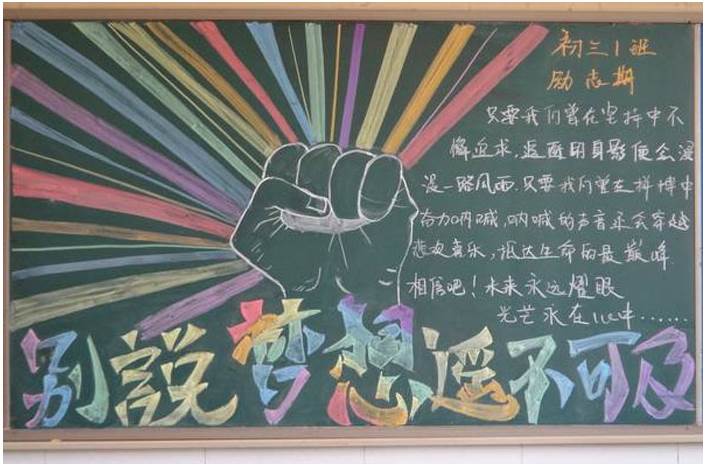 初三1班
励志期
只要我们曾在坚持中不
懈追求，追随的身影便会漫
漫一路风雨，只要我们曾在拼搏中
奋力呐喊，呐喊的声音亦会穿越
悲欢喜乐，抵达生命的最巅峰
相信吧！未来永远耀眼
光芒永在心中……
别説梦想遥不可及